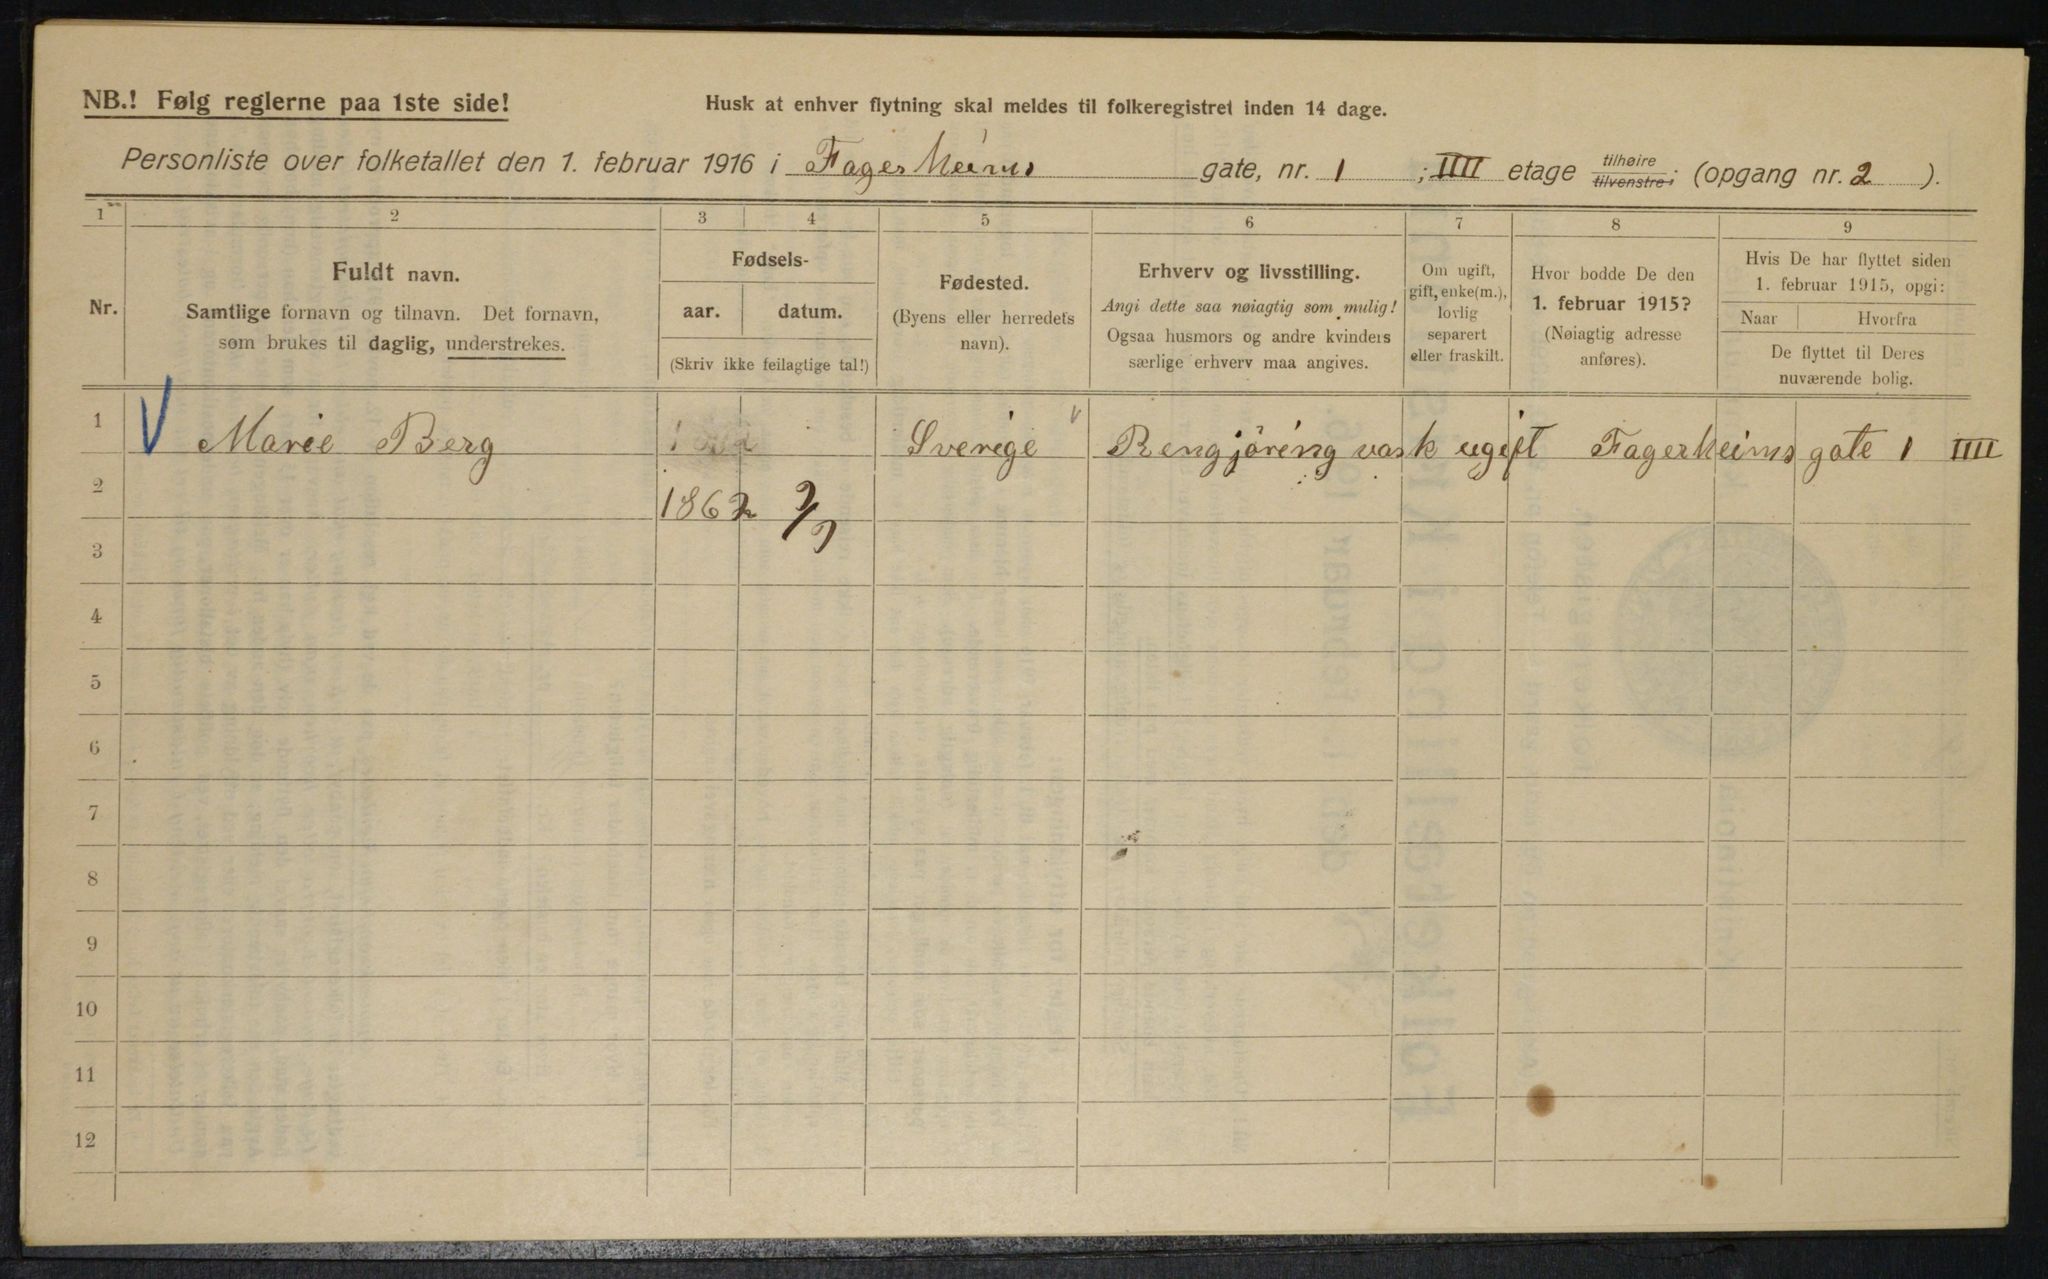 NB.! Følg reglerne paa 1ste side!
Husk at enhver flytning skal meldes til folkeregistret inden 14 dage.
Personliste over folketallet den 1. februar 1916 i Fagerheims gate, nr. 1 ; IIII etage tilhøire tilvenstre; (opgang nr. 2 ).
1 2 3 4 5 6 7 8 9
Nr.
Fuldt navn.
Samtlige fornavn og tilnavn. Det fornavn,
som brukes til daglig, understrekes.
Fødsels-
aar. datum.
(Skriv ikke feilagtige tal!)
Fødested.
(Byens eller herredets
navn).
Erhverv og livsstilling.
Angi dette saa nøiagtig som mulig!
Ogsaa husmors og andre kvinders
særlige erhverv maa angives.
Om ugift,
gift, enke(m.),
lovlig
separert
eller fraskilt.
Hvor bodde De den
1. februar 1915?
(Nøiagtig adresse
anføres).
Hvis De har flyttet siden
1. februar 1915, opgi:
Naar Hvorfra
De flyttet til Deres
nuværende bolig.
1 V Marie Berg Sverige v Rengjöring vask ugift Fagerheims gate 1 IIII
2 1862
3
4
5
6
7
8
9
10
11
12